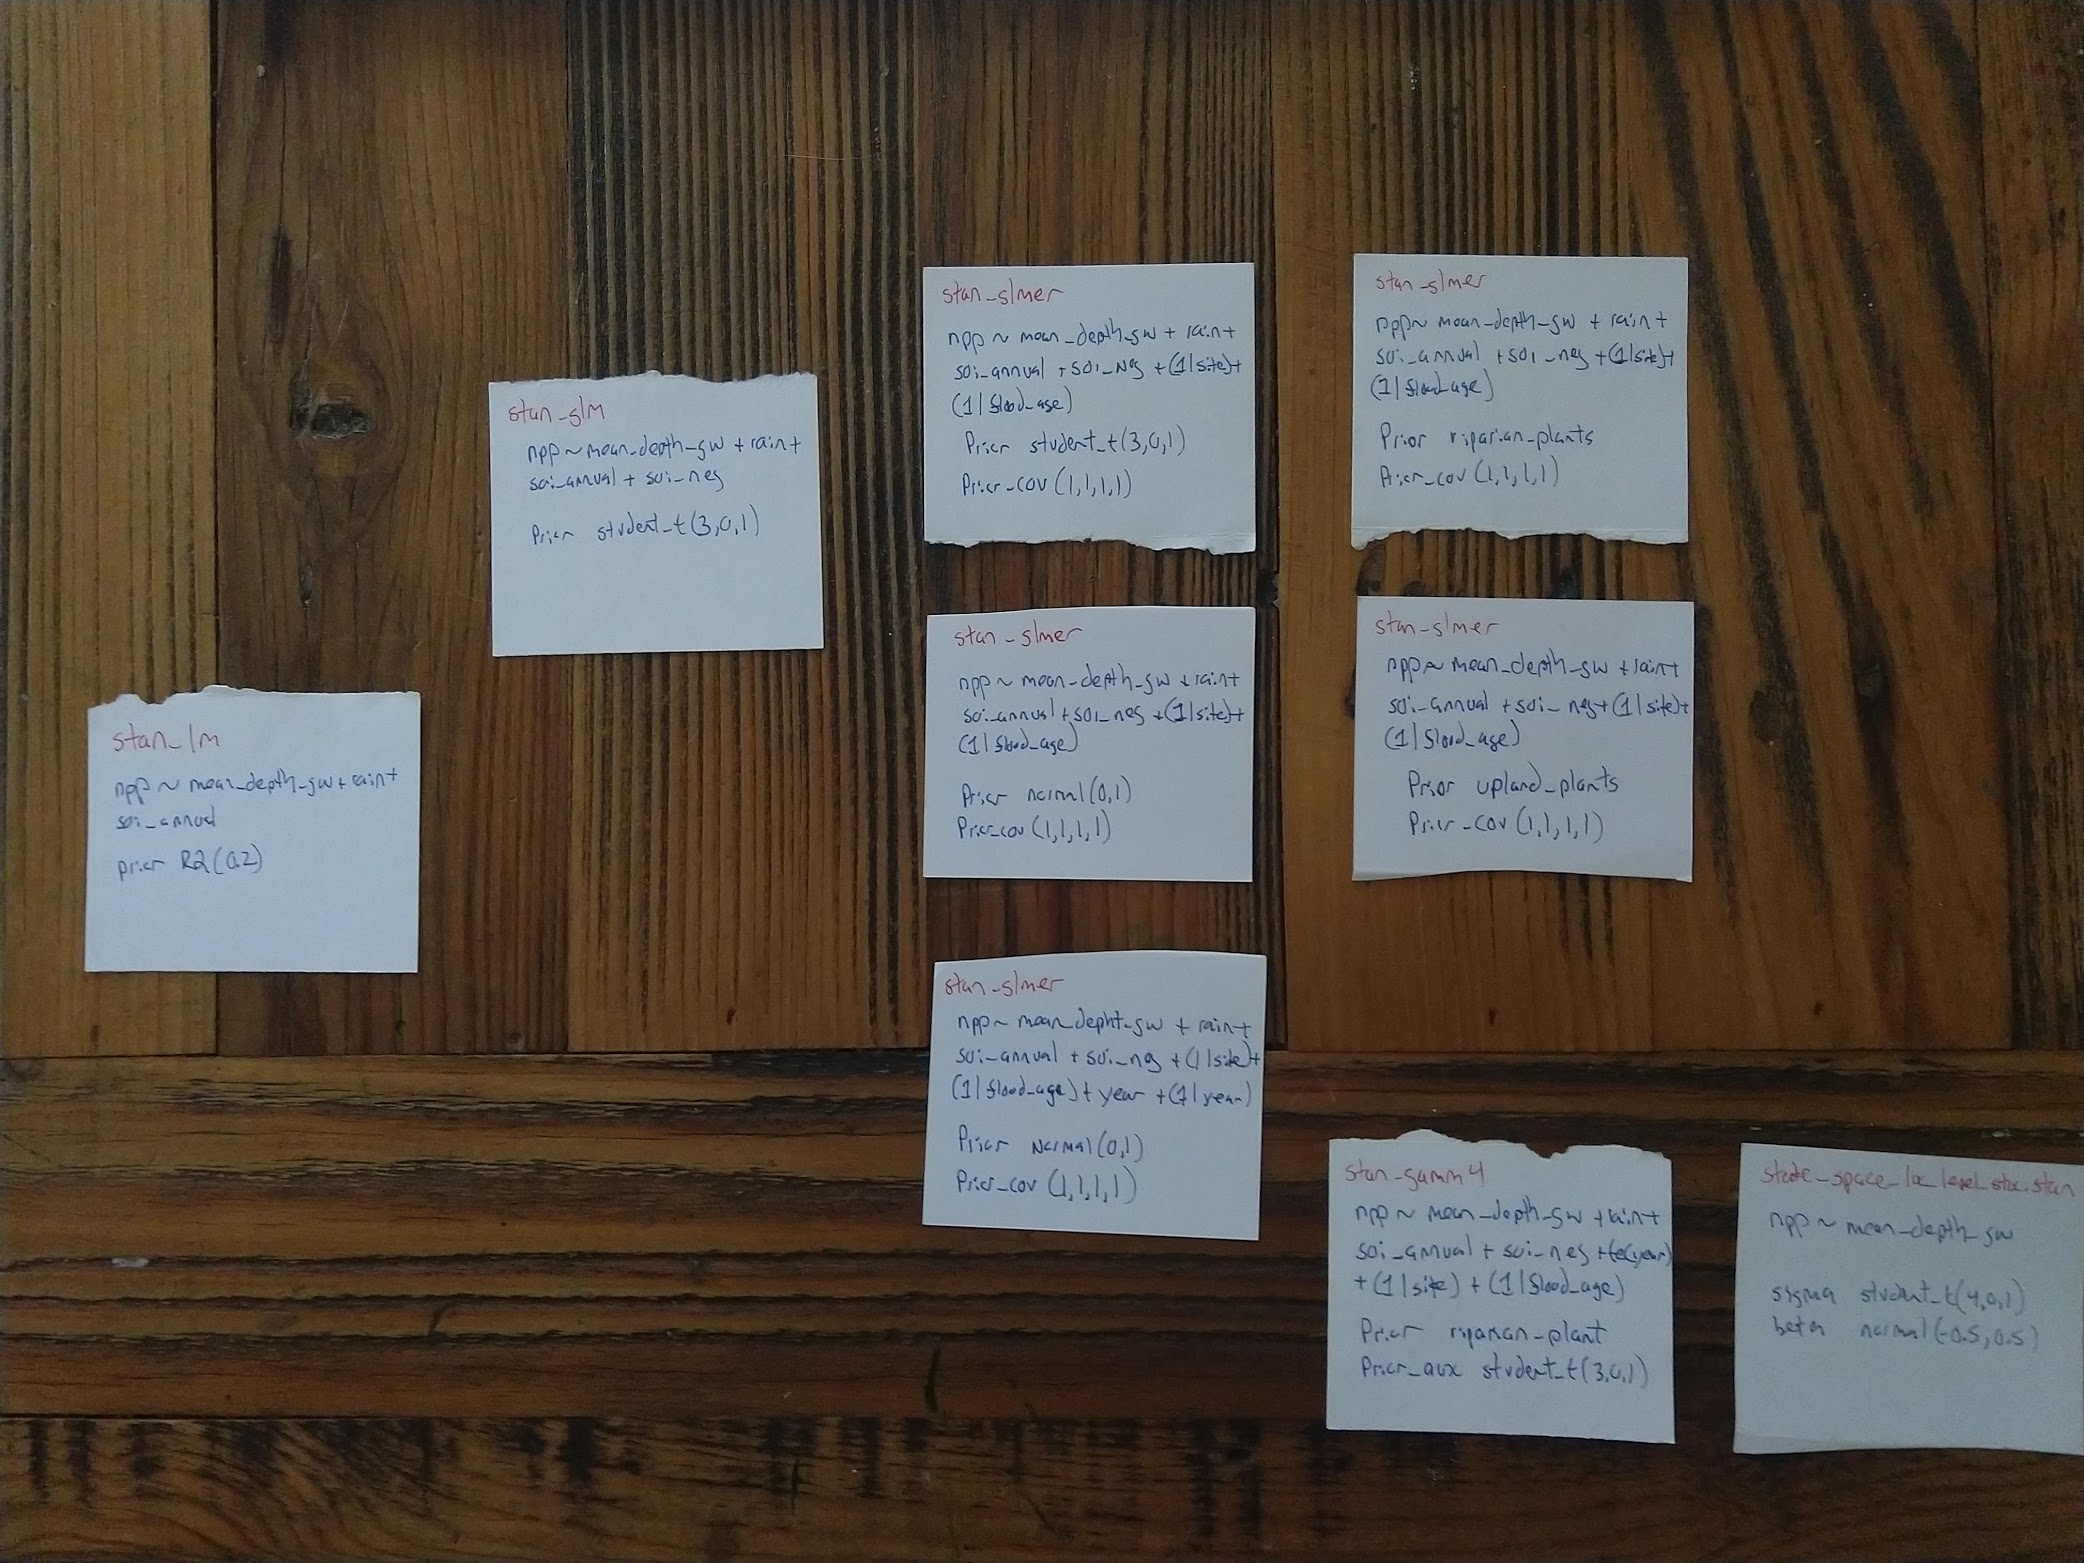 stan_lm
npp ~ mean_depth_gw + rain +
soi_annual
prior R2(0.2)
stan_glm
npp ~ mean_depth_gw + rain +
soi_annual + soi_neg
Prior student_t(3,0,1)
stan_glmer
npp ~ mean_depth_gw + rain +
soi_annual + soi_neg + (1|site) +
(1|flood_age)
Prior student_t(3,0,1)
Prior_cov (1,1,1,1)
stan_glmer
npp ~ mean_depth_gw + rain +
soi_annual + soi_neg + (1|site) +
(1|flood_age)
Prior normal(0,1)
Prior_cov (1,1,1,1)
stan_glmer
npp ~ mean_depht_gw + rain +
soi_annual + soi_neg + (1|site) +
(1|flood_age) + year + (1|year)
Prior Normal(0,1)
Prior_cov (1,1,1,1)
stan_glmer
npp ~ mean_depth_gw + rain +
soi_annual + soi_neg + (1|site) +
(1|flood_age)
Prior riparian_plants
Prior_cov (1,1,1,1)
stan_glmer
npp ~ mean_depth_gw + rain +
soi_annual + soi_neg + (1|site) +
(1|flood_age)
Prior upland_plants
Prior_cov (1,1,1,1)
stan_gamm4
npp ~ mean_depth_gw + rain +
soi_annual + soi_neg + te(year)
+ (1|site) + (1|flood_age)
Prior riparian_plant
Prior_aux student_t(3,0,1)
state_space_loc_level_stoc.stan
npp ~ mean_depth_gw
sigma student_t(4,0,1)
beta normal(-0.5,0.5)